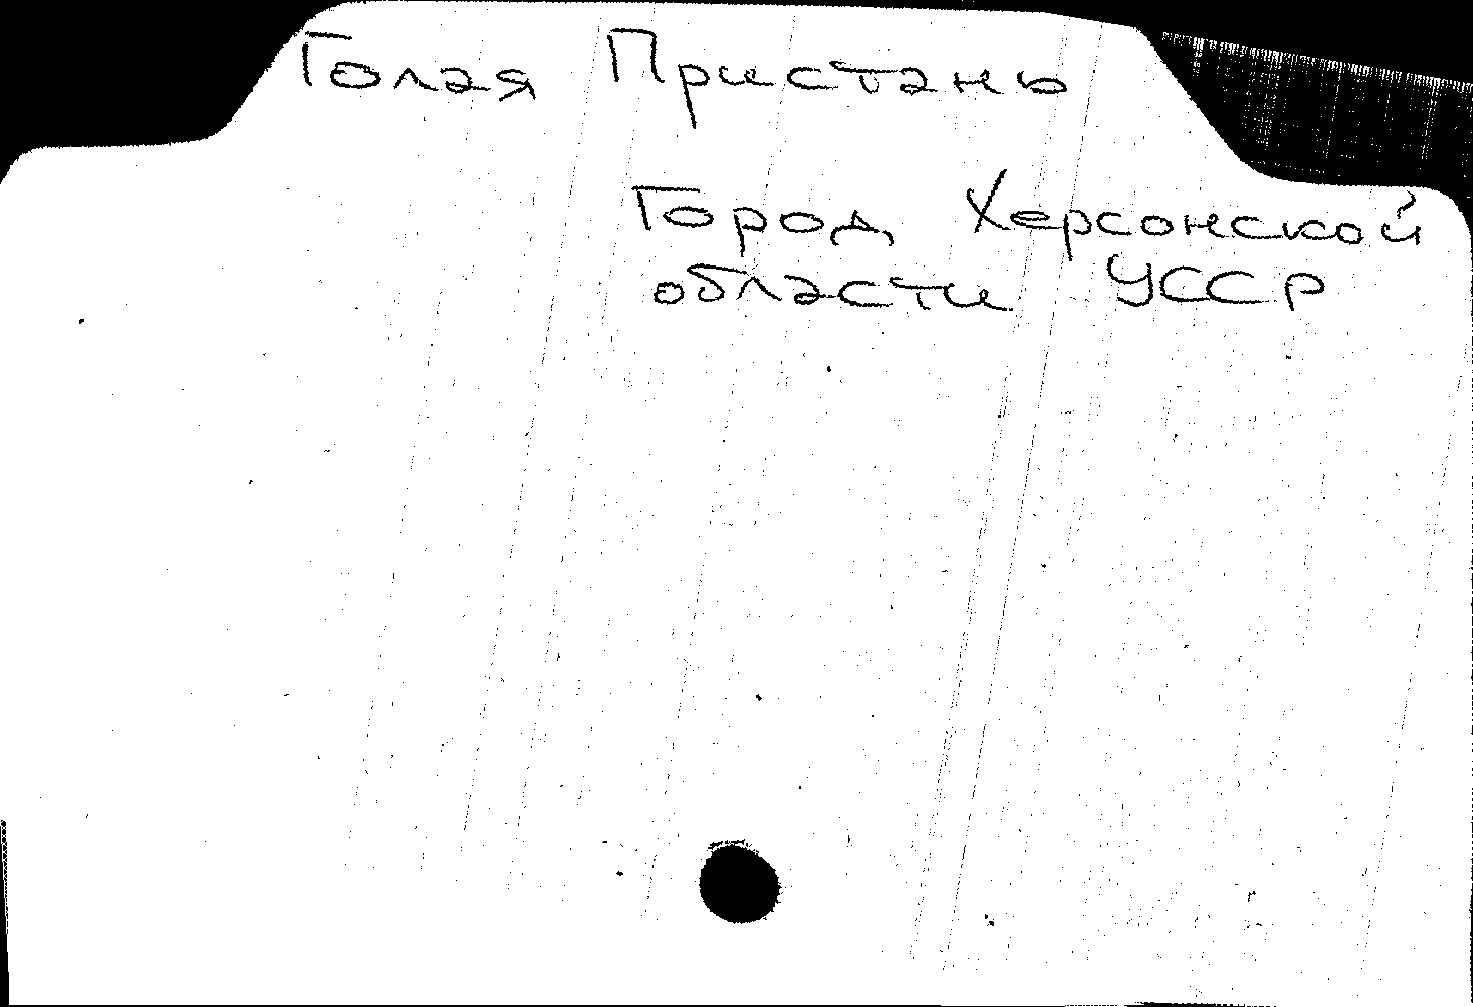 Голая Пристань
Город Херсонской
области УССР